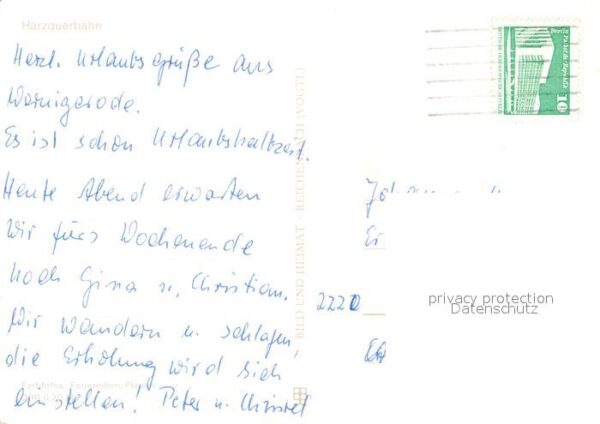 Harzquerbahn
Herzl. Urlaubsgrüße aus
Wernigerode.
Es ist schon Urlaubshalbzeit.
Heute Abend erwarten
wir fürs Wochenende
noch Gina u. Christian.
Wir wandern u. schlafen,
die Erholung wird sich
einstellen! Peter u. Christel
BILD UND HEIMAT · REICHENBACH (VOGTL)
Berlin Palast der Republik
10
2220
privacy protection
Datenschutz